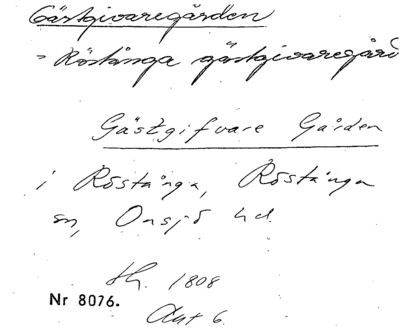 Gästgivaregården
= Röstånga gästgivaregård
Gästgifvare Gården
i Röstånga, Röstånga
sn, Onsjö hd.
1808
Nr 8076.
Akt 6.